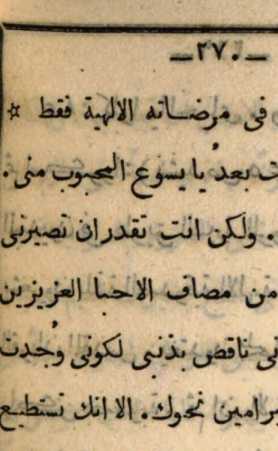 ـ٢٧٠ـ
فى مرضاته الالهية فقط ☼
ت بعدُ يا يسوع المحبوب منى.
. ولكن انت تقدر ان تصيرنى
من مصاف الاحبا العزيزين
نى ناقص بذنبى لكونى وُجدت
برامين نحوك. الا انك تستطيع